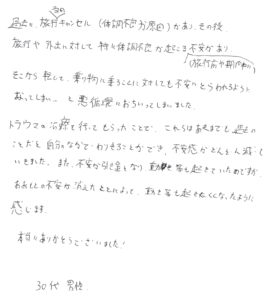 過去に、当日旅行キャンセル(体調不良が原因)があり、その後、
旅行や外出に対して特に体調不良が起こる不安があり
(旅行前や期間中に)
そこから転じて、乗り物に乗ることに対しても不安にとらわれるように
なってしまい…と悪循環におちいってしまいました。
トラウマの治療を行ってもらったことで、これらはあくまでも過去の
ことだと自分のなかで、わりきることができ、不安感がどんどん減って
いきました。また、不安が引き金となり動悸等も起きていたのですが
おおもとの不安が消えたことによって、動悸等も起きなくなったように
感じます。
本当にありがとうございました!
30代 男性